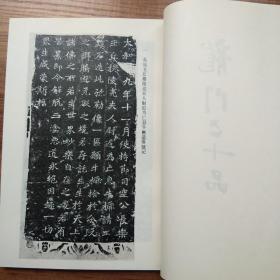 龍門二十品
長樂王丘穆陵亮夫人尉遲為亡息牛橛造像記
太和十九年十一月使持節司空公長樂
王丘穆陵亮夫人尉遲為亡息牛橛請工
鏤石造此彌勒像一區願牛橛捨於分段
之鄉騰遊无礙之境若存託生生於天上
諸佛之所若生世界妙樂自在之處若有苦
累即令解脫三塗惡道永絕因趣一切眾
生咸蒙斯福